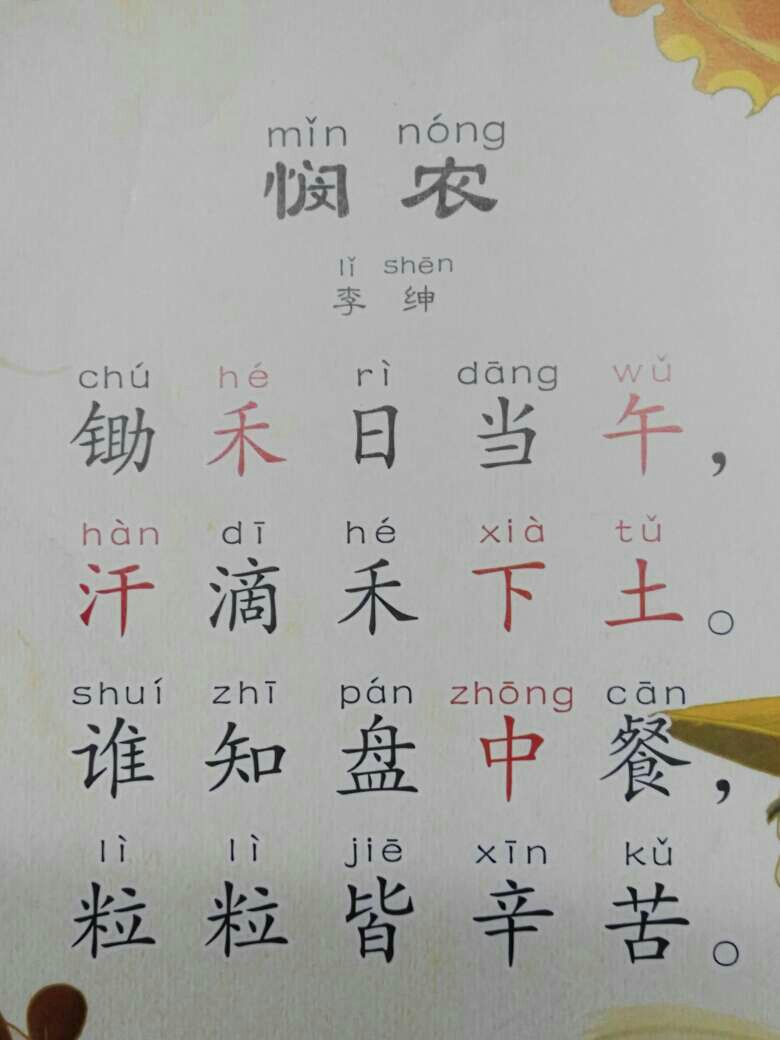 mǐn nóng
悯 农
lǐ shēn
李 绅
chú hé rì dāng wǔ
锄 禾 日 当 午，
hàn dī hé xià tǔ
汗 滴 禾 下 土。
shuí zhī pán zhōng cān
谁 知 盘 中 餐，
lì lì jiē xīn kǔ
粒 粒 皆 辛 苦。